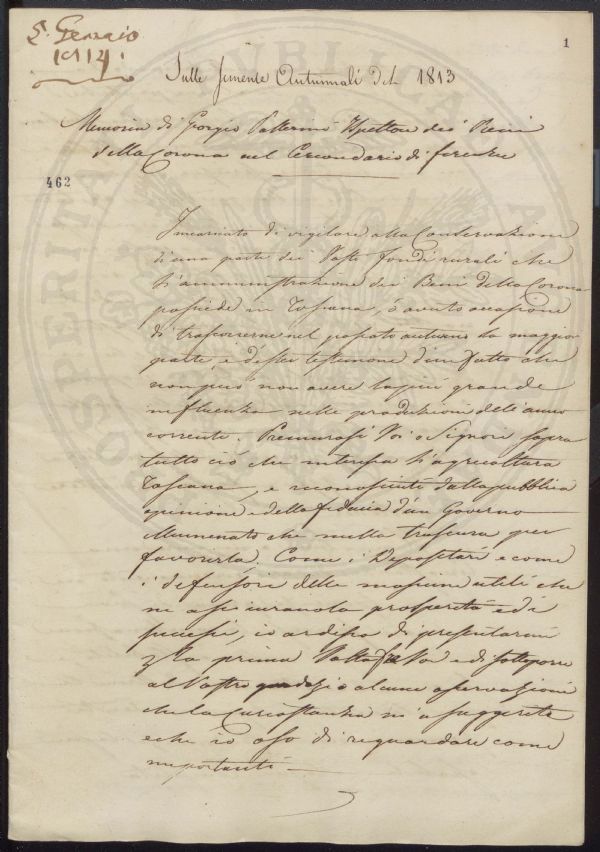 5. Gennaio
1814.
1
Sulle semente Autunnali del 1813
Memoria di Giorgio Ispettore dei Beni
della Corona nel Circondario di Firenze
462
Incaricato di vigilare alla Conservazione
di una parte dei Vasti fondi rurali che
l'amministrazione dei Beni della Corona
possiede in Toscana, ò avuto occasione
di trascorrerne nel passato autunno la maggior
parte, e d'esser testimone d'un fatto che
non può non avere la più grande
influenza nelle produzioni dell'anno
corrente. Premurosi Voi o Signori sopra
tutto ciò che interessa l'agricoltura
Toscana, e riconosciuti dalla pubblica
opinione e della fiducia d'un Governo
illuminato che nulla trascura per
favorirla. Come i Depositari e come
i difensori delle massime utili che
ne assicurano la prosperità ed i
successi, io ardisco di presentarmi
la prima Volta a Voi e di sottoporre
al Vostro alcune osservazioni
che la Circostanza mi à suggerite
e che io oso di riguardare come
importanti
PROSPERITATI PUBLICAE AUGENDAE